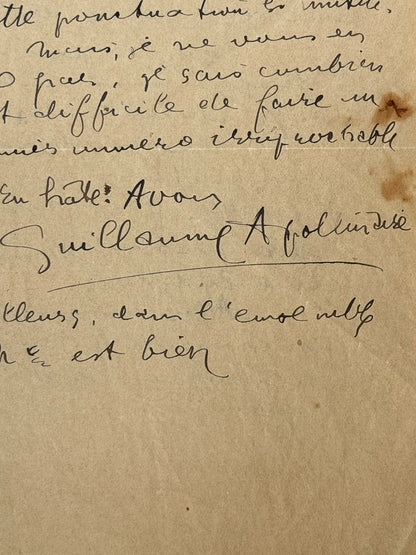 tte ponctuation est inutile.
Mais, je ne vous en
pas, je sais combien
t difficile de faire un
mier numéro irréprochable
En hâte. A vous
Guillaume Apollinaire
lleurs, dans l'ensemble
est bien